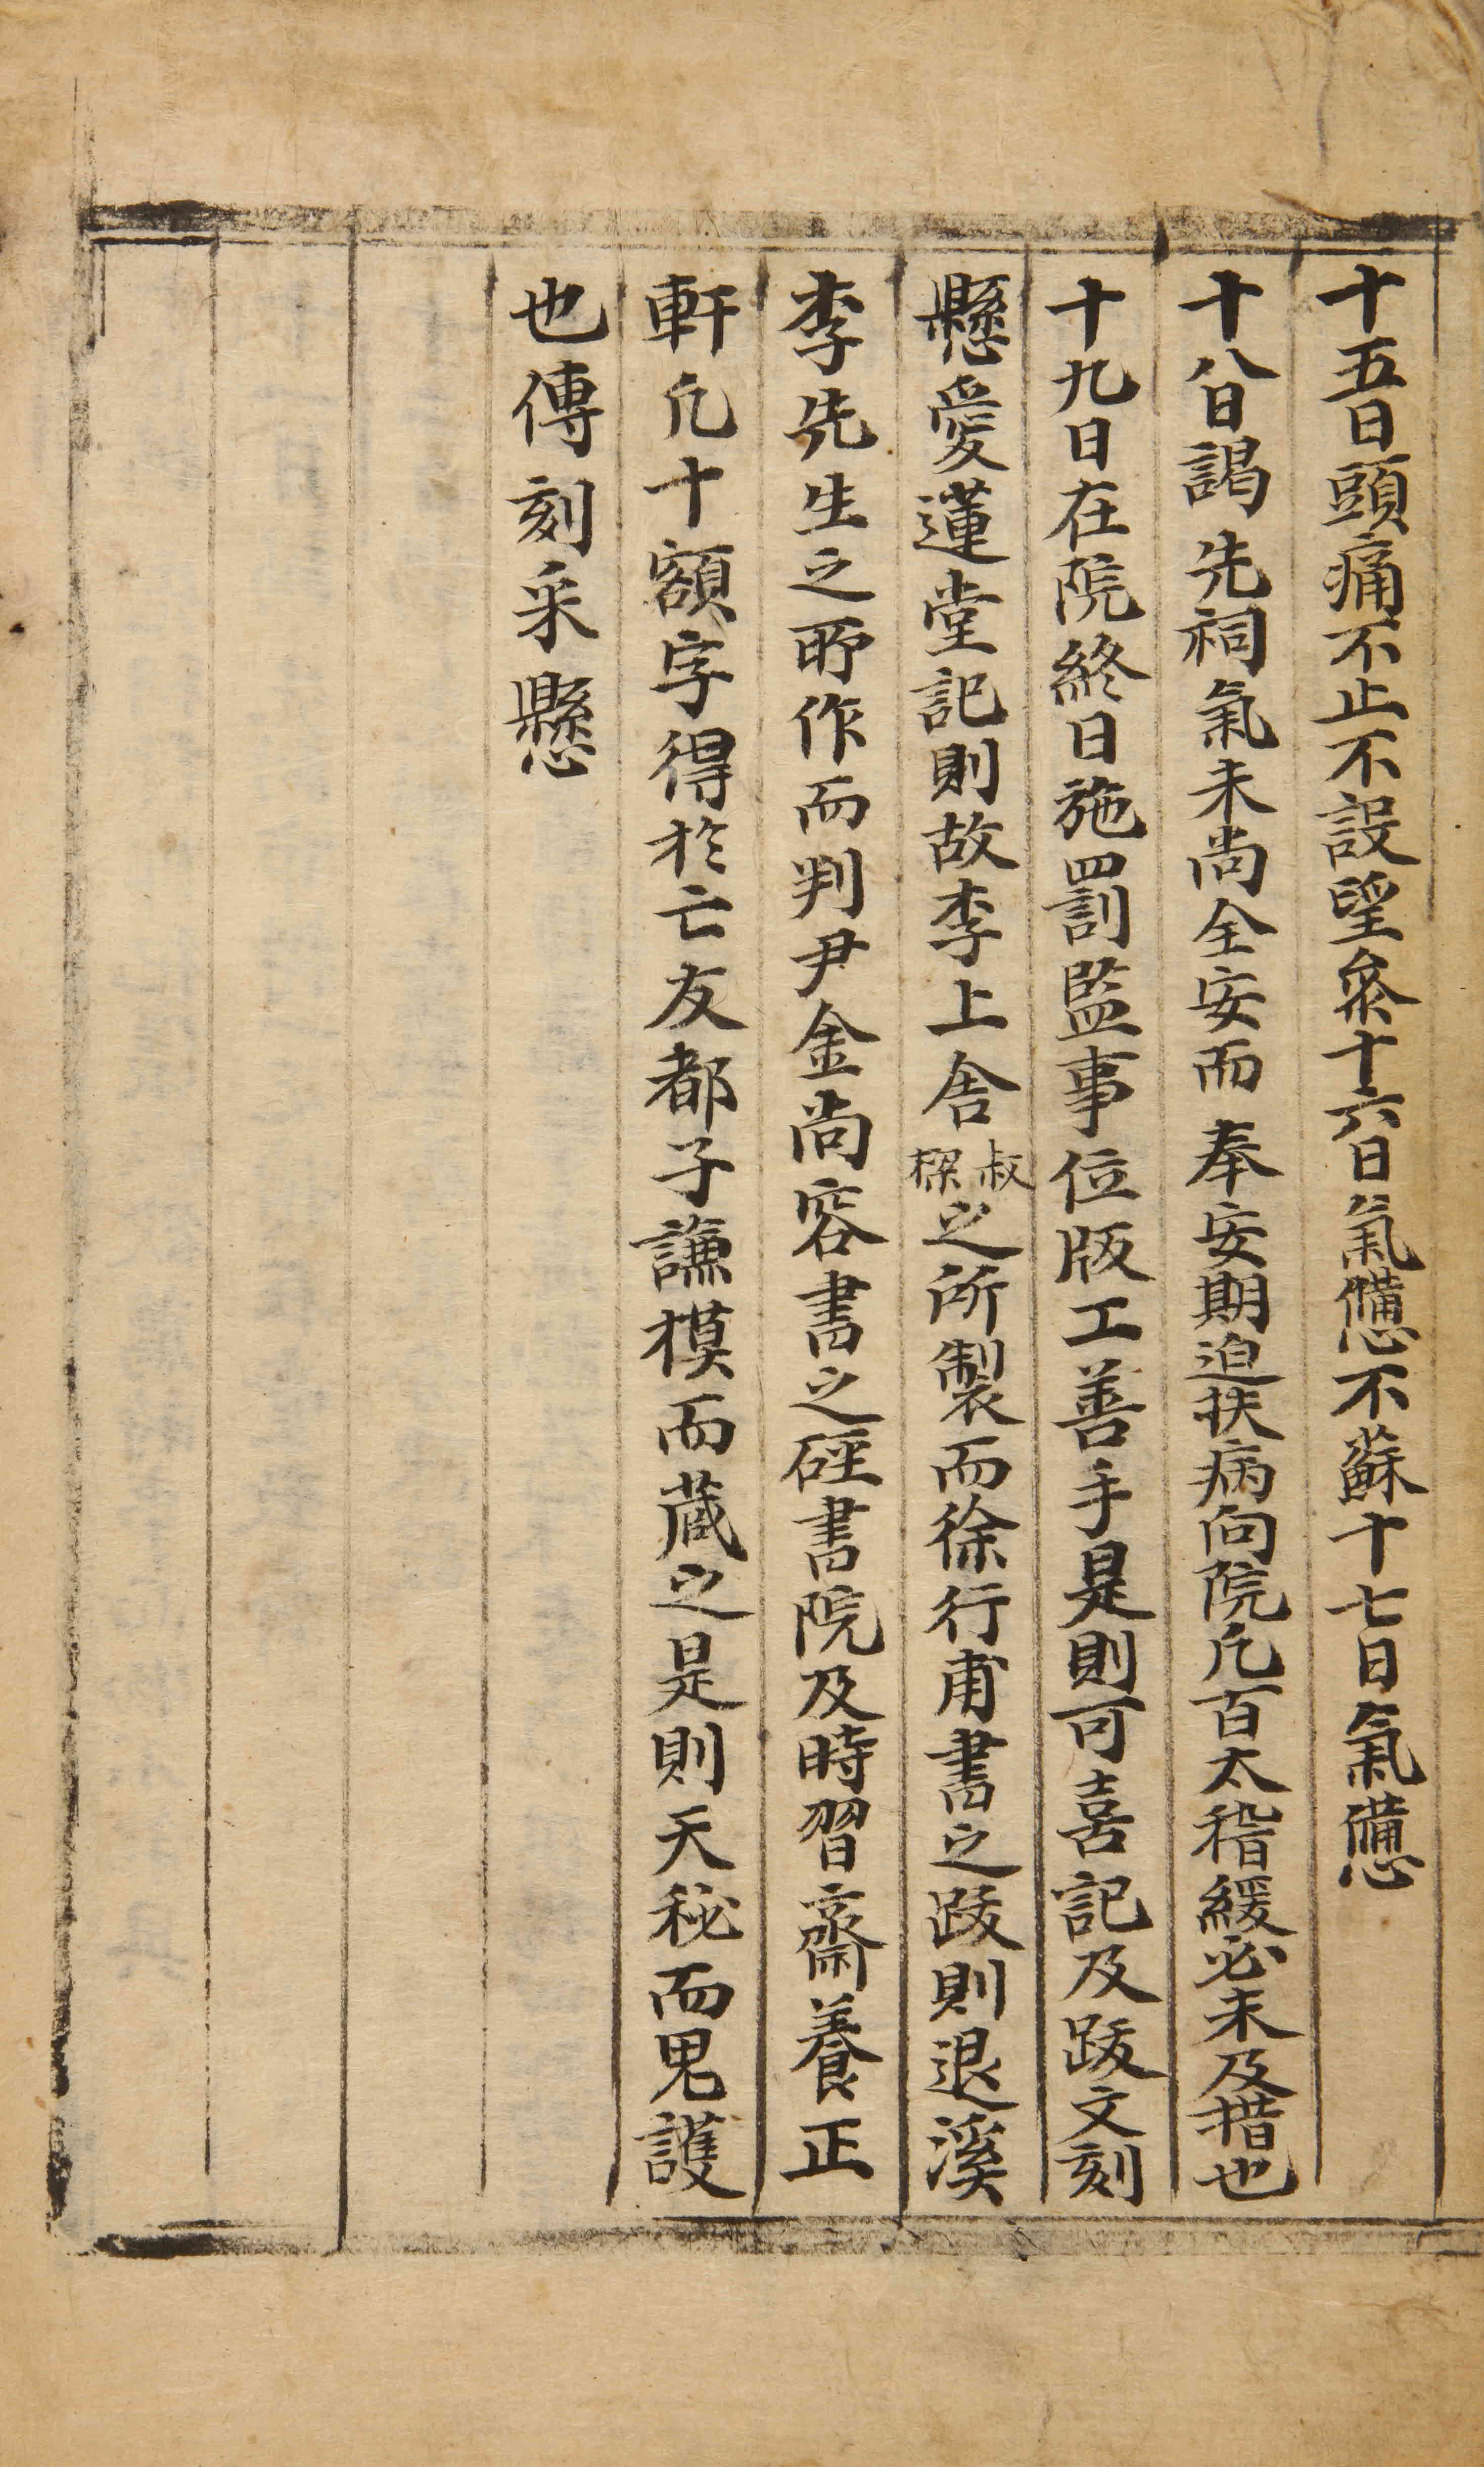 十五日頭痛不止不設望叅十六日氣憊不蘇十七日氣憊
十八日謁 先祠氣未尚全安而 奉安期迫扶病向院凢百太稽緩必未及措也
十九日在院終日施罰監事位版工善手是則可喜記及跋文刻
懸愛蓮堂記則故李上舍叔樑之所製而徐行甫書之跋則退溪
李先生之所作而判尹金尚容書之硏書院及時習齋養正
軒凢十額字得於亡友都子謙模而蔵之是則天秘而鬼護
也傳刻采懸